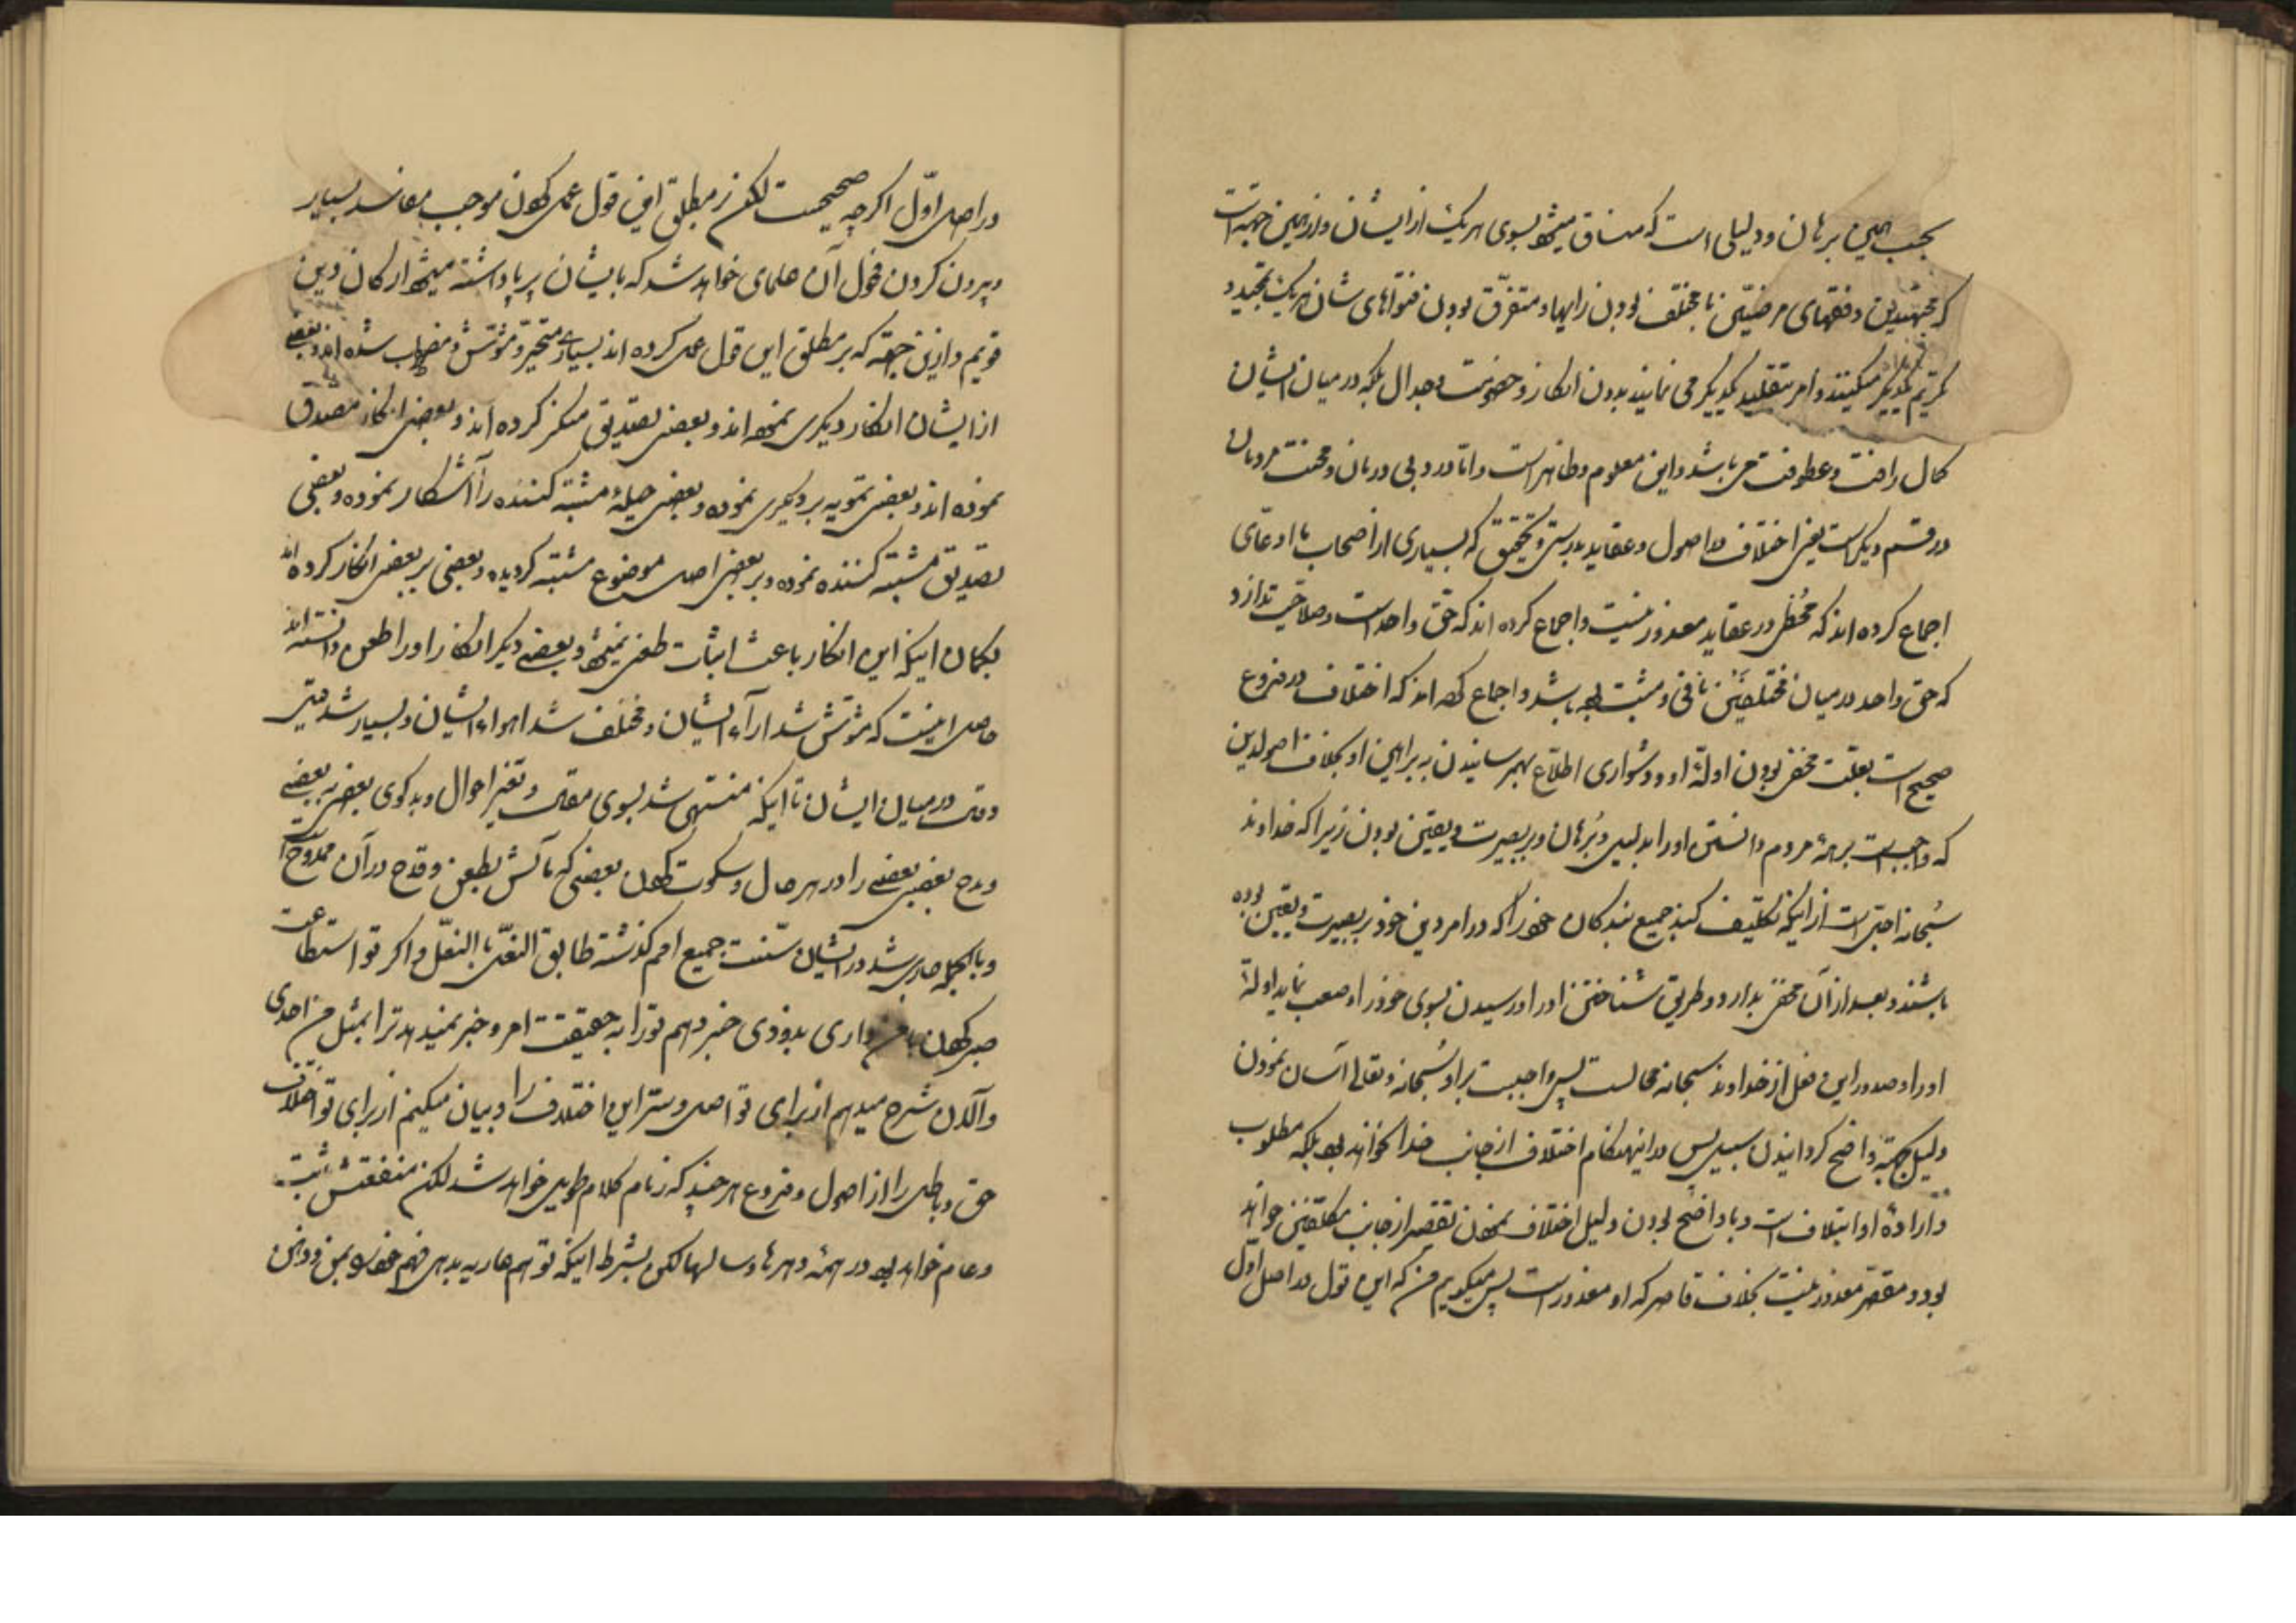 بحسب همین برهان و دلیلی است که منساق میشود بسوی هر یک از ایشان و از همین جهت است
که مجتهدین و فقهای مرضیین با مختلف بودن رایها و متفرق بودن فتواهای شان هر یک تمجید و
تکریم یکدیگر میکنند و امر بتقلید یکدیگر می نمایند بدون انکار و خصومت و جدال بلکه در میان ایشان
کمال رافت و عطوفت می باشد و این معلوم و ظاهر است و اما درد بی درمان و محنت مردمان
در قسم دیگر است یعنی اختلاف در اصول و عقاید بدرستی و تحقیق که بسیاری از اصحاب ما ادعای
اجماع کرده اند که مخطی در عقاید معذور نیست و اجماع کرده اند که حق واحد است و صلاحیت ندارد
که حق واحد در میان مختلفین نافی و مثبت بوده باشد و اجماع کرده اند که اختلاف در فروع
صحیح است بعلت مخفی بودن ادلهٔ او و دشواری اطلاع بهم رسانیدن به براهین او بخلاف اصول دین
که واجب است بر همهٔ مردم دانستن او را بدلیل و برهان و بر بصیرت و یقین بودن زیرا که خداوند
سبحانه اجل است از اینکه تکلیف کند جمیع بندکان خود را که در امر دین خود بر بصیرت و یقین بوده
باشند و بعد از آن مخفی بدارد طریق شناختن او را و رسیدن بسوی خود را و صعب نماید ادلهٔ
او را و صدور این فعل از خداوند سبحانه محالست پس واجبست بر او سبحانه و تعالی آسان نمودن
دلیل و حجة و واضح کردانیدن سبیل پس در اینهنکام اختلاف از جانب خدا نخواهد بود بلکه مطلوب
و ارادهٔ او ایتلاف است و با واضح بودن دلیل اختلاف نمودن تقصیر از جانب مکلفین خواهد
بود و مقصر معذور نیست بخلاف قاصر که او معذور است پس میکویم من که این قول در اصل اول
در اصل اول اکر چه صحیحست لکن بر مطلق این قول عمل کردن موجب مفاسد بسیار
و بیرون کردن فحول آن علمای خواهد شد که بایشان بر پا داشته میشود ارکان دین
قویم و ازین جهة که بر مطلق این قول عمل کرده اند بسیاری متحیر و مشوش و مضطرب شده اند و بعضی
از ایشان انکار دیکری نموده اند و بعضی تصدیق منکر کرده اند و بعضی انکار مصدق
نموده اند و بعضی تمویه بر دیکری نموده و بعضی حیلهٔ مشتبه کننده را آشکار نموده و بعضی
تصدیق مشتبه کننده نموده و بر بعضی اصل موضوع مشتبه کردیده و بعضی بر بعضی انکار کرده اند
بکمان اینکه این انکار باعث اثبات طعن نمیشود و بعضی دیکر انکار او را طعن دانسته اند
حاصل اینست که مشوش شد آراء ایشان و مختلف شد اهواء ایشان و بسیار شد قیل
و قال در میان ایشان تا اینکه منتهی شد بسوی مقال و تغیر احوال و بدکوی بعضی به بعضی
و مدح بعضی بعضی را در هر حال و سکوت کردن بعضی که مآلش بطعن و قدح در آن ممدوح است
و بالجمله جاری شد در ایشان سنت جمیع امم کذشته طابق النعل بالنعل و اکر تو استطاعت
صبر کردن با من داری بزودی خبر دهم تو را به حقیقت امر و خبر نمیدهد ترا بمثل من احدی
و الآن شرح میدهم از برای تو اصل و سر این اختلاف را و بیان میکنم از برای تو اختلاف
حق و باطل را از اصول و فروع هر چند که زمام کلام طویل خواهد شد لکن منفعتش ثبت
و عام خواهد بود در همهٔ دهرها و سالها لکن بشرط اینکه تو هم عاریه بدهی فهم خود را بمن و ذهن